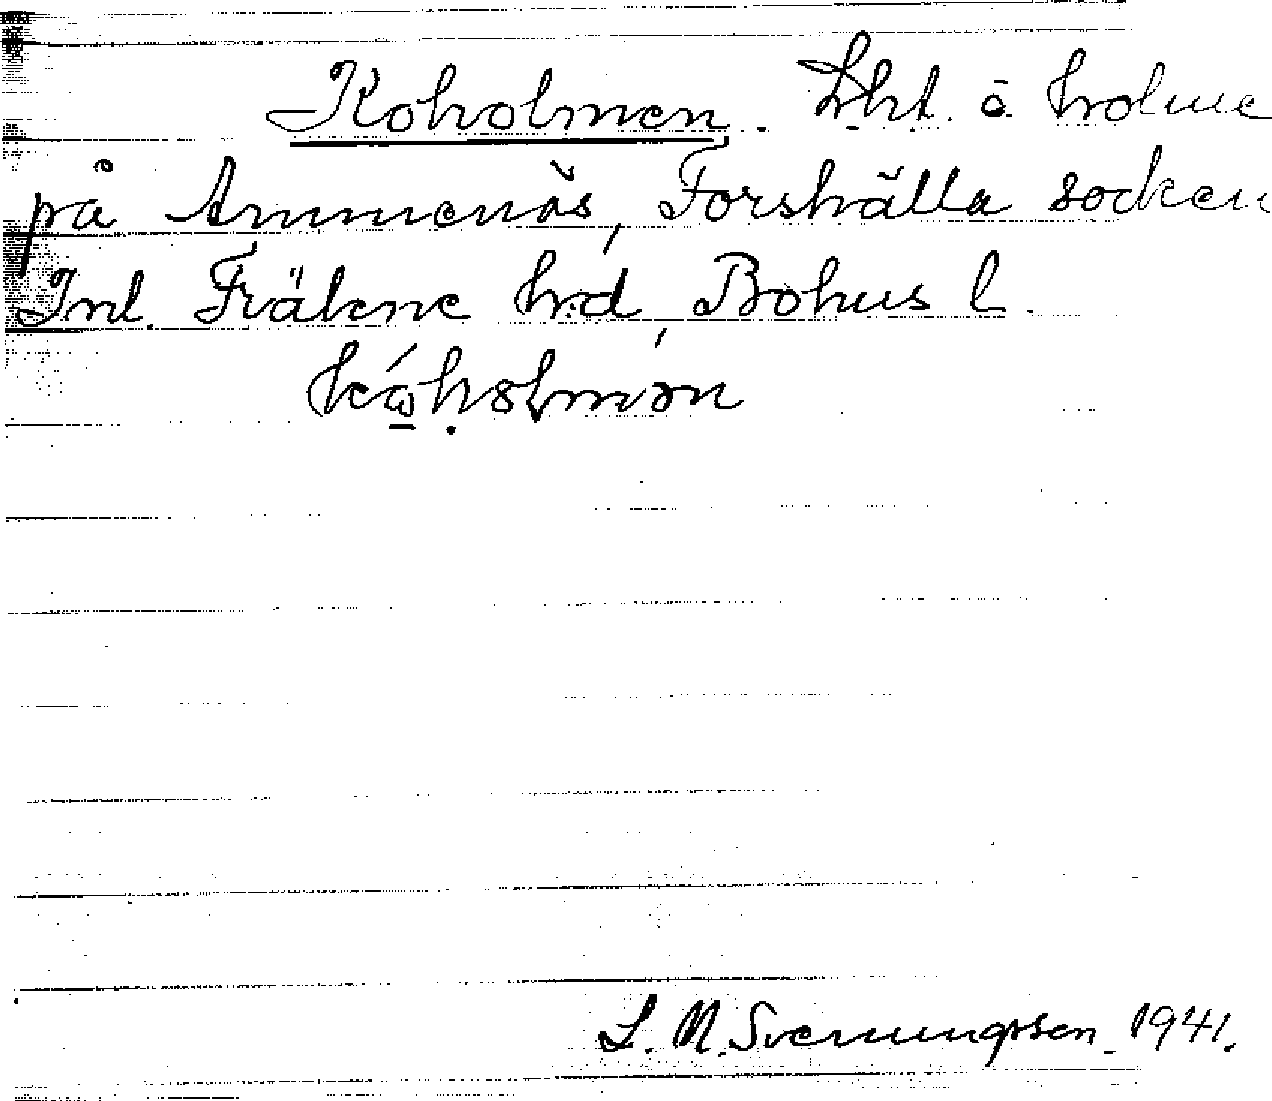 Koholmen. Lht. å holme
på Ammenäs, Forshälla socken
Inl. Fräkne hd, Bohus l.
L. N. Svenungsson 1941.